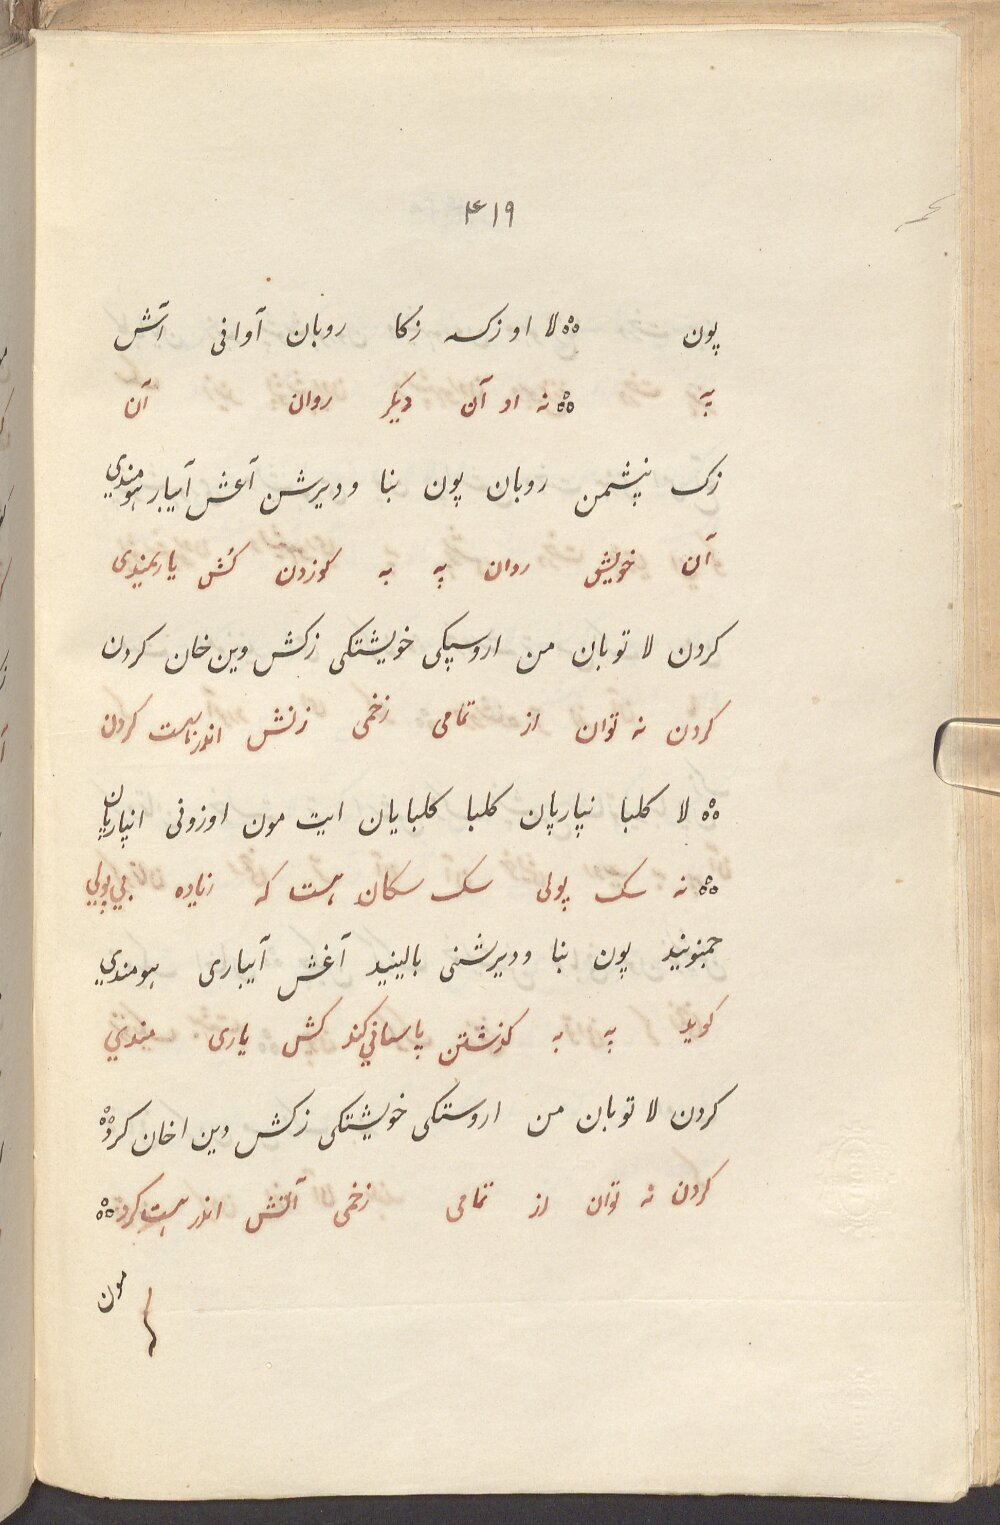 ۴۱۹
پون ؞ لا او زکـ زکا روبان آوافی آتش
په ؞ نه او آن دیکر روان آن
زک نپشمن روبان پون بنا ودیرشن آغش آییار هومندي
آن خویش روان په به کوزدن کش یاریمندی
کردن لا توبان من اروسپکی خویشتکی زکش وین خان کردن
کردن نه توان از تمامی زخمی زنش اندر هست کردن
؞ لا کلبا نپارپان کلبا کلبایان ایت مون اوزونی انپارپان
؞ نه سک پولی سک سکان هست که زیاده بي پولي
جمنونید پون بنا ودیرشنی بالینید آغش آییاری هومندي
کوید په به کذشتن پاسبانی کند کش یاری مندي
کردن لا توبان من اروستکی خویشتکی زکش وین اخان کرد ؞
کردن نه توان از تمامی زخمی آنش اندر هست کرد ؞
مون